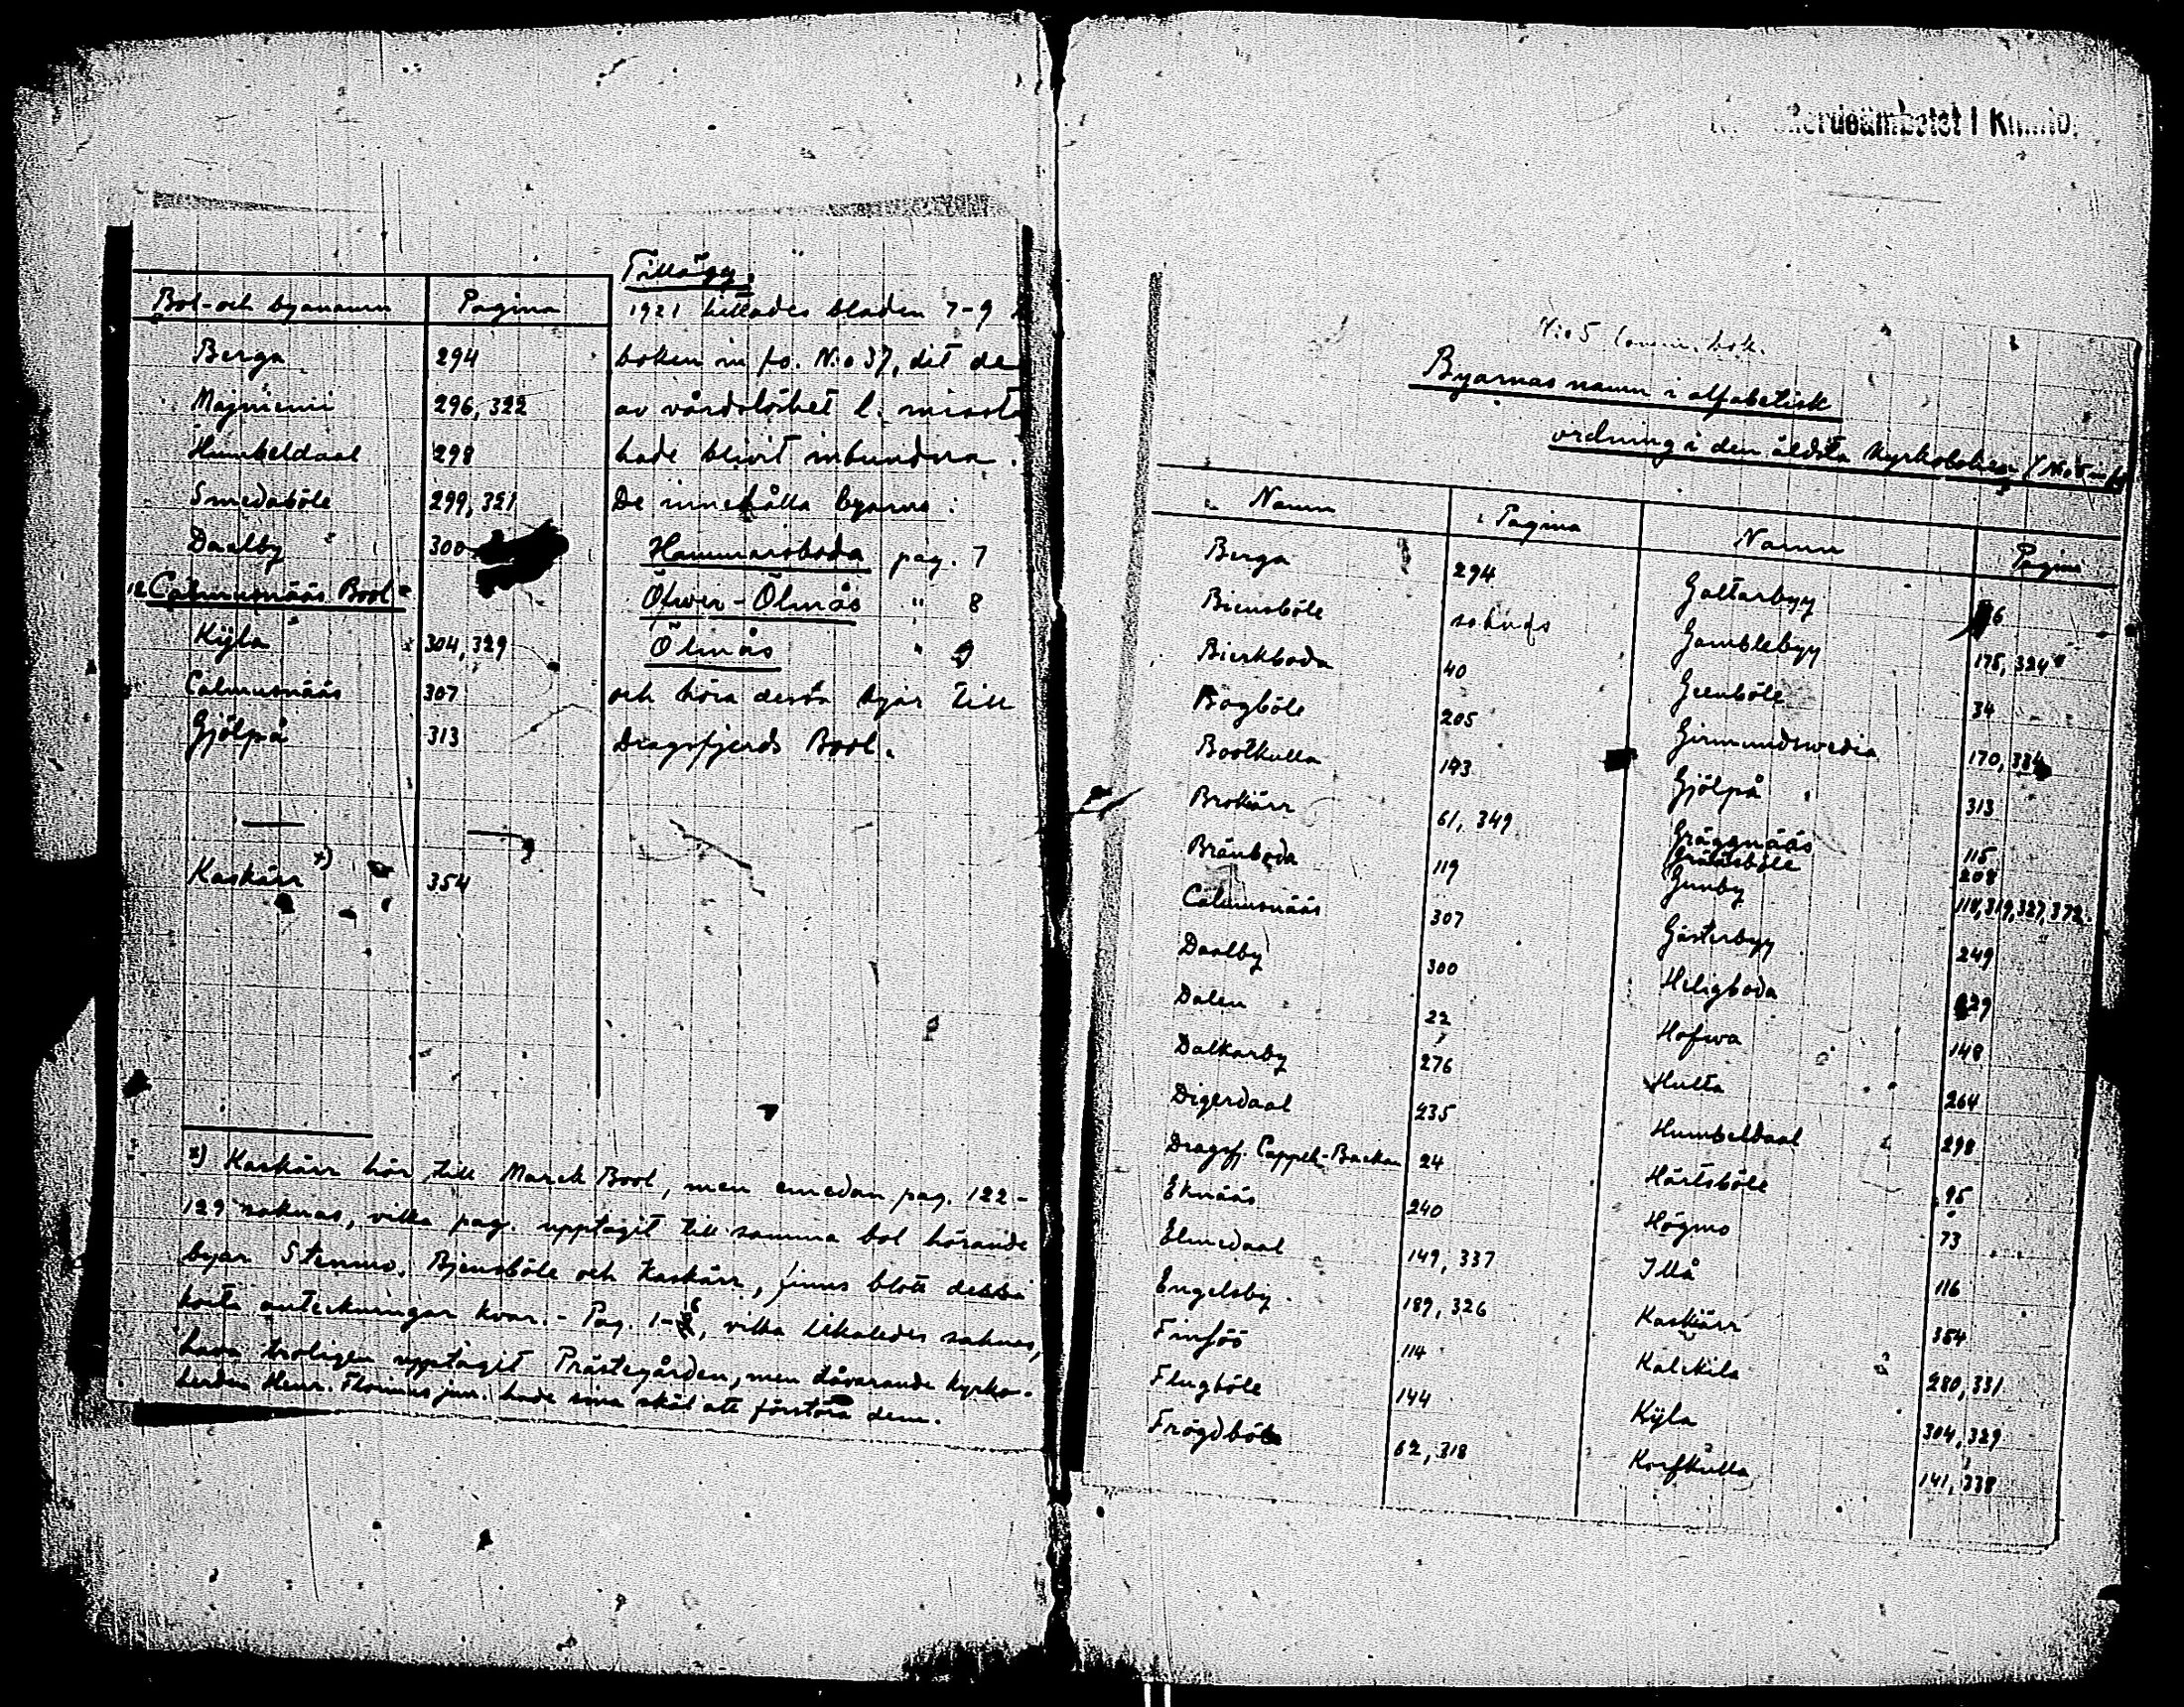 Bol- och byanamn Pagina
Berga 294
Majniemi 296, 322
Humbeldaal 298
Smedaböle 299, 321
Daalby 300
12 Calmusnääs Bool
Kÿla 304, 329
Calmusnääs 307
Gjölpå 313
Kaskärr x) 354
Tillägg.
1921 hittades bladen 7-9
boken in fo. N:o 37, dit de
av vårdslöshet l. misstag
hade blivit inbundna.
De innehålla byarna:
Hammarsboda pag. 7
Öfwer-Ölmås " 8
Ölmås " 9
och höra dessa byar till
Dragsfjerds Bool.
x) Kaskärr hör till Marck Bool, men emedan pag. 122-
129 saknas, vilka pag. upptagit till samma bol hörande
byar Stenmo, Bjensböle och Kaskärr, finns blott dessa
korta anteckningar kvar. - Pag. 1-6, vilka likaledes saknas,
hava troligen upptagit Prästegården, men dåvarande kyrko-
herden Henr. Florinus jun. hade sina skäl att förstöra dem.
N:o 5 Comm. bok.
Byarnas namn i alfabetisk
ordning i den äldsta kyrkoboken
Namn Pagina Namn Pagina
Berga 294
Biensböle saknas
Bierkboda 40
Bogböle 205
Boolkulla 143
Brokärr 61, 349
Bränboda 119
Calmusnääs 307
Daalby 300
Dalen 22
Dalkarby 276
Digerdaal 235
Dragsfj. Cappell-Backan 24
Eknääs 240
Elmedaal 149, 337
Engelsby 189, 326
Finföö 114
Flugböle 144
Frögdböle 62, 318
Galtarbyy 6
Gamblebyy 175, 324
Geenböle 34
Girmundswedia 170, 334
Gjölpå 313
Gräggnääs 115
Gräänsböle 208
Gunby 118, 319, 327, 372.
Gästerbyy 249
Heligboda 29
Hofwa 148
Hulta 264
Humbeldaal 298
Härtsböle 95
Högmo 73
Illå 116
Kaskärr 354
Kalckila 280, 331
Kÿla 304, 329
Korfkulla 141, 338